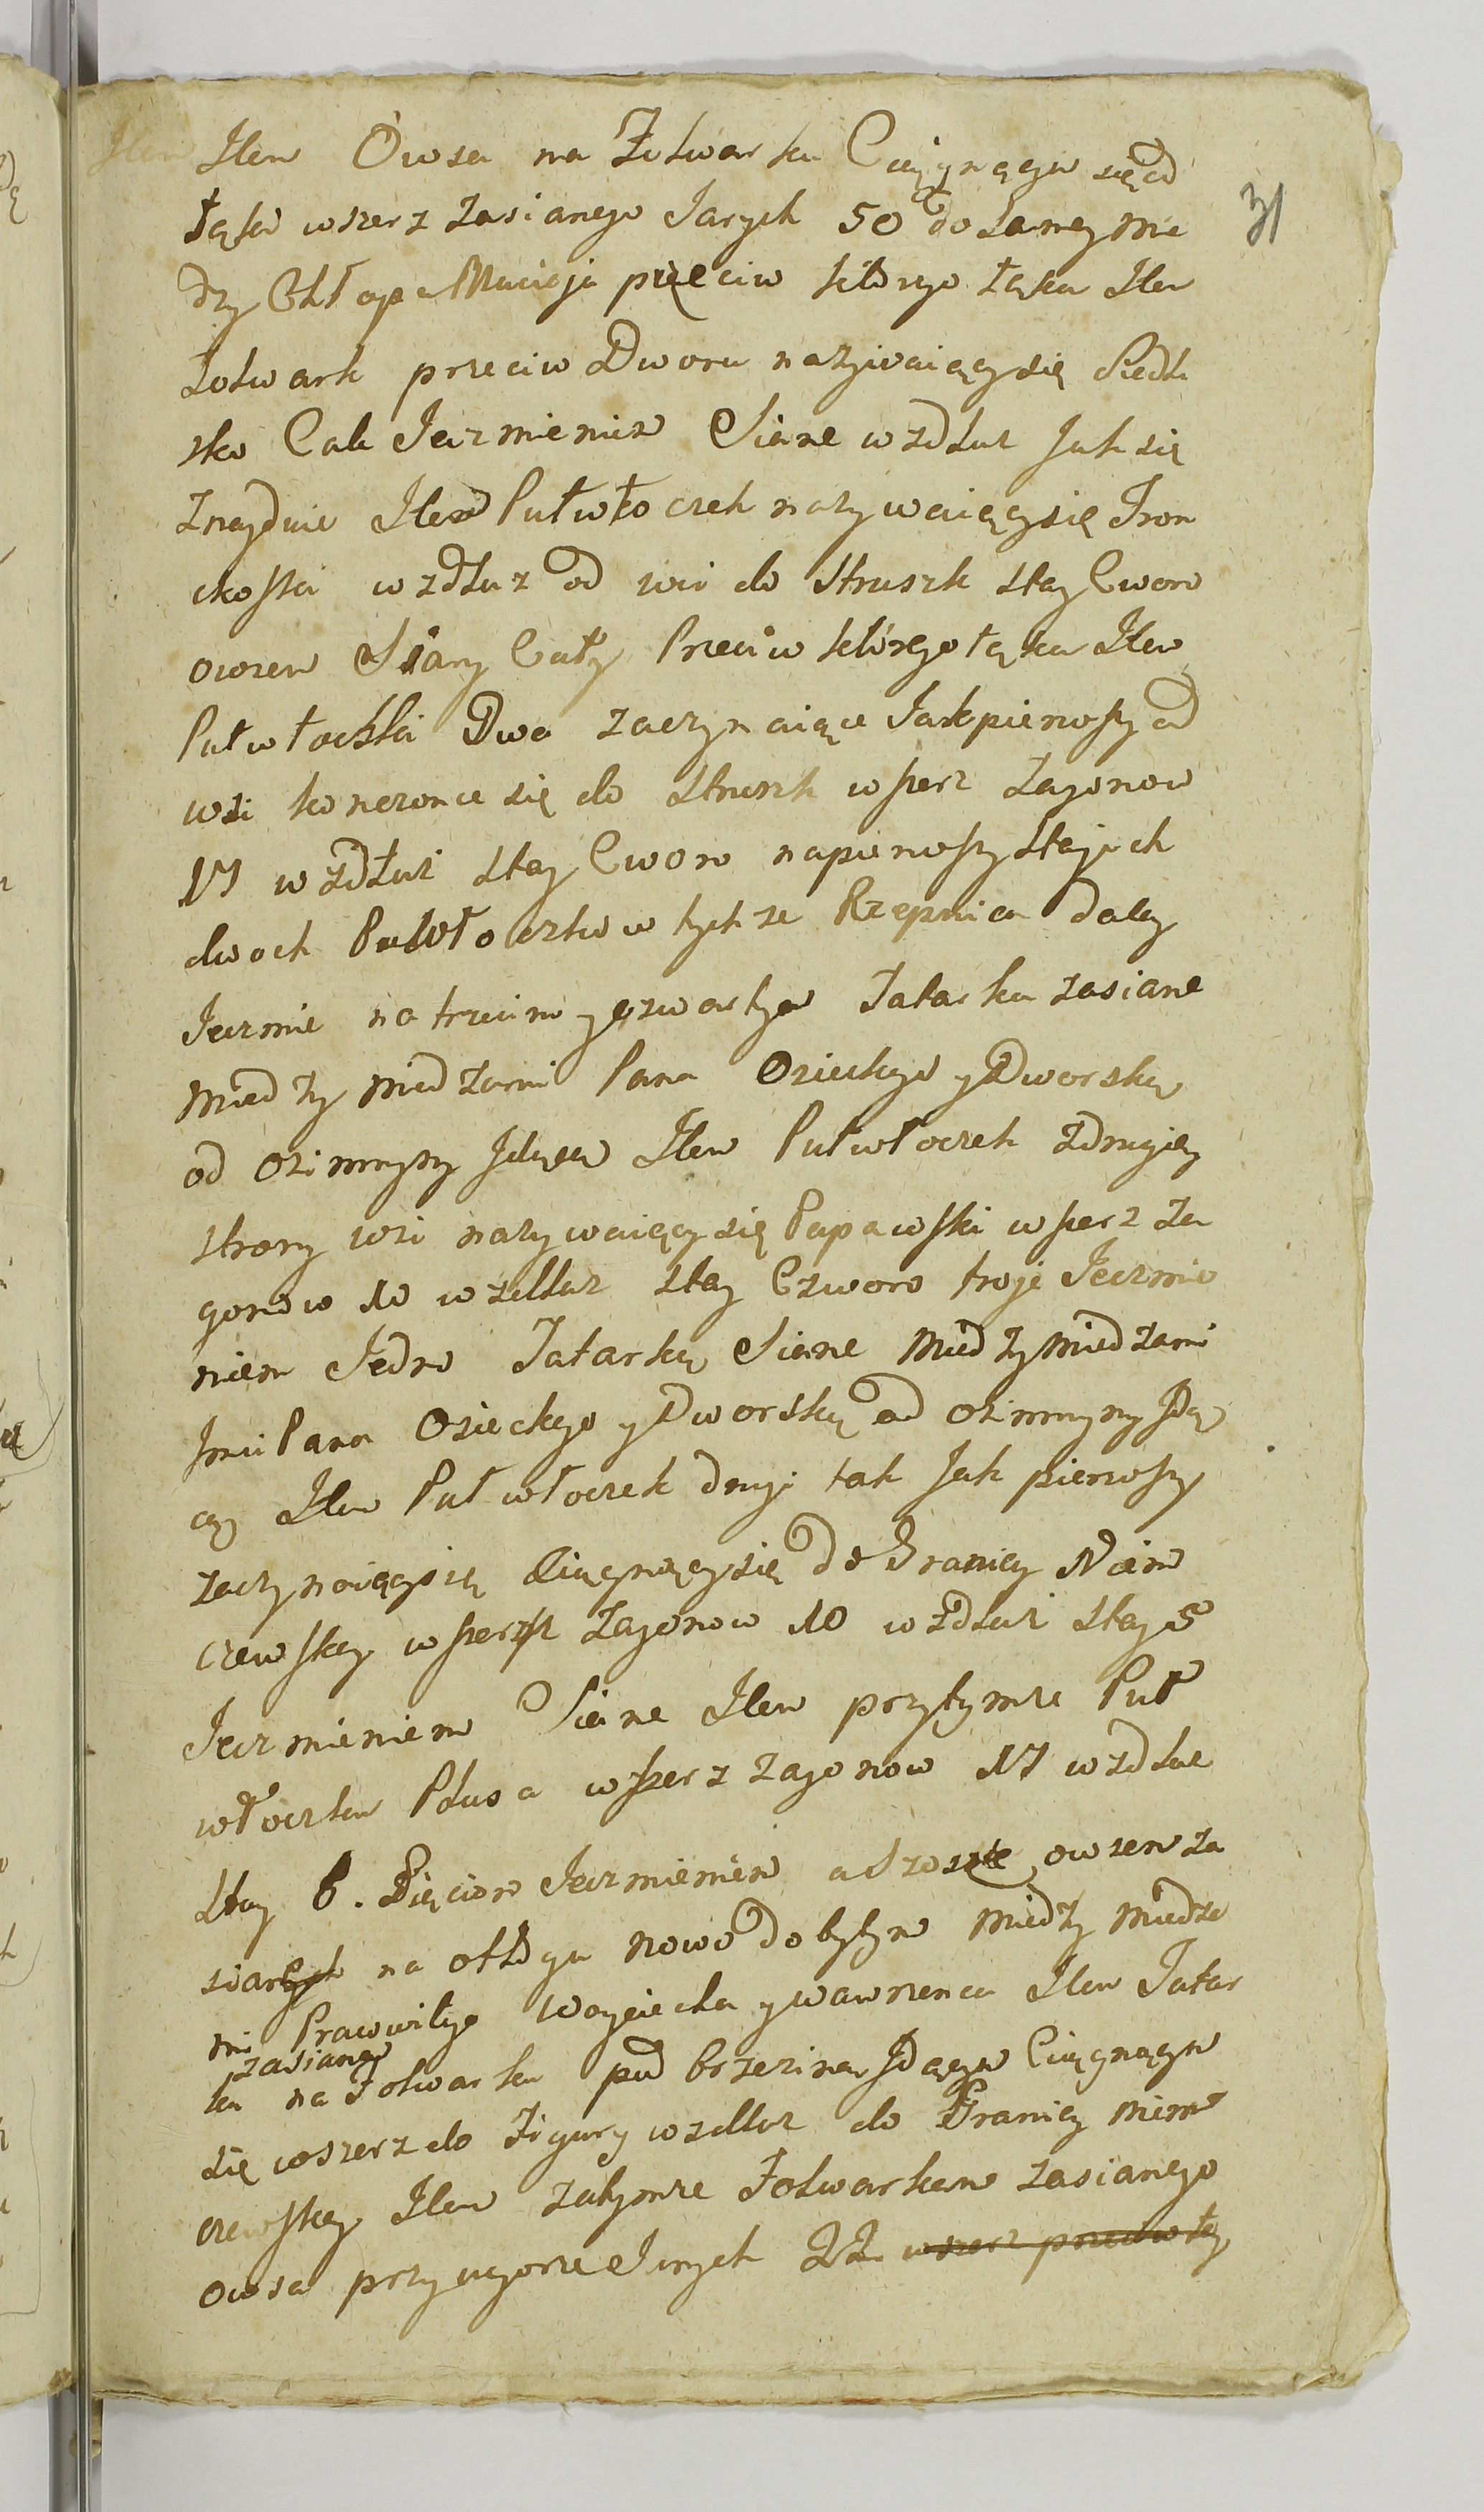 Item Owsa na Folwarku Ciągnącym się od
31
łąki wszerz zasianego Jarych 50 do samey mie
dzy Chłopa Macieja przeciw którego łąka Item
Folwark przeciw Dworu nazywaiący się Siedli
sko Cale Jęczmieniem Siane wzdłuż Jak się
znayduie Item Pułwłoczek nazywaiący się Iron
ckoski wzdłuż od wsi do Struszk stay Cworo
owsem Siany Cały Przeciw którego łąka Item
Pułwłoczki Dwa zaczynaiące Jak pierwszy od
wsi konczonce się do Struszk wszerz zagonow
17 wzdłuż stay Cworo na pierwszy stajach
dwoch Pułwłoczkow tychze Rzepnica daley
Jęczmie na trzecim y czwartym Tatarka zasiane
miedzy miedzami Pana Osieckego y Dworską
od oziminy Jdącey Item Pułwłoczek z drugiey
strony wsi nazywaiący się Papawski wszerz za
gonow 10 wzdłuż stay Czworo troje Jęczmie
niem Jedno Tatarką Siane miedzy miedzami
Jmci Pana Osieckego y Dworską od oziminy Jdą
cey Item Pułwłoczek drugi tak Jak pierwszy
zaczynaiący się Ciągnący się do Granicy Niem
czewskey wszerz zagonow 10 wzdłuż stay 5
Jęczmieniem Siane Item przytymze Puł
włoczku Plusa wszerz zagonow 17 wzdłuż
stay 6. Pięcioro Jęczmieniem a szoste owsem za
siane na odłogu nowo dobytym miedzy miedza
mi Prawowitego Woyciecha y Wawrzenca Item Tatar
zasiane
ka na Folwarku pod brzezina Jdącym Ciągnącym
się wszerz do Figury wzdłuż do Granicy Niem
czewskey Item zatymze Folwarkem zasianego
owsa przy ugorze Jnych 22 wszerz przeciw tey